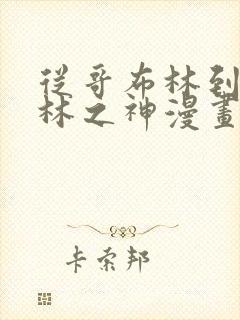 從哥布林到
林之神漫畫
卡索邦